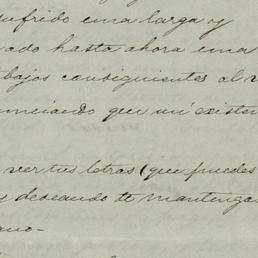 sufrido una larga y
ado hasta ahora una
bajos consiguientes al v
unciando que mi existen
ver tus letras (que puedes
y deseando te mantenga
ano-